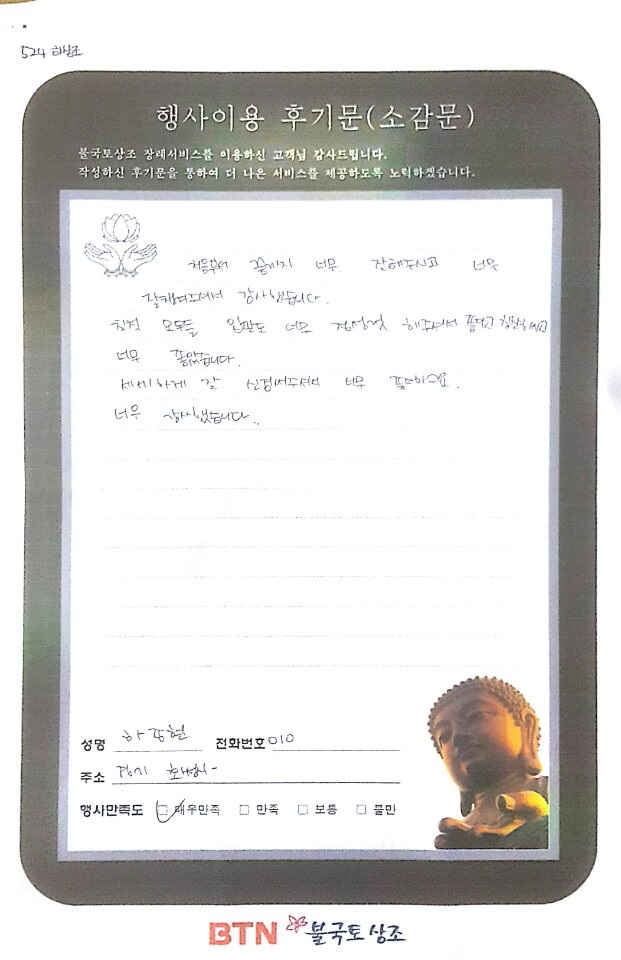 524 하상조
행사이용 후기문(소감문)
불국토상조 장례서비스를 이용하신 고객님 감사드립니다.
작성하신 후기문을 통하여 더 나은 서비스를 제공하도록 노력하겠습니다.
처음부터 끝까지 너무 잘해주시고 너무
잘해주셔서 감사했습니다.
친척 모두들 입관도 너무 정성껏 해주셔서 좋다고 칭찬하시고
너무 좋았습니다.
세세하게 잘 신경써주셔서 너무 좋더라구요.
너무 감사했습니다..
성명 하종현 전화번호 010
주소 경기 화성시
행사만족도 매우만족 만족 보통 불만
BTN 불국토상조